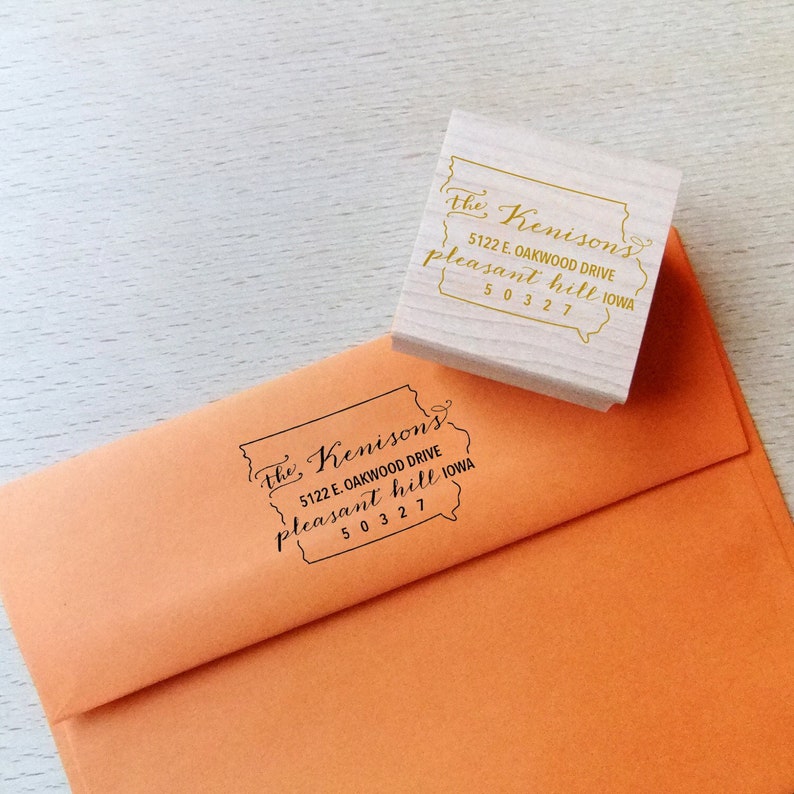 the Kenisons
5122 E. OAKWOOD DRIVE
pleasant hill IOWA
50327
the Kenisons
5122 E. OAKWOOD DRIVE
pleasant hill IOWA
50327